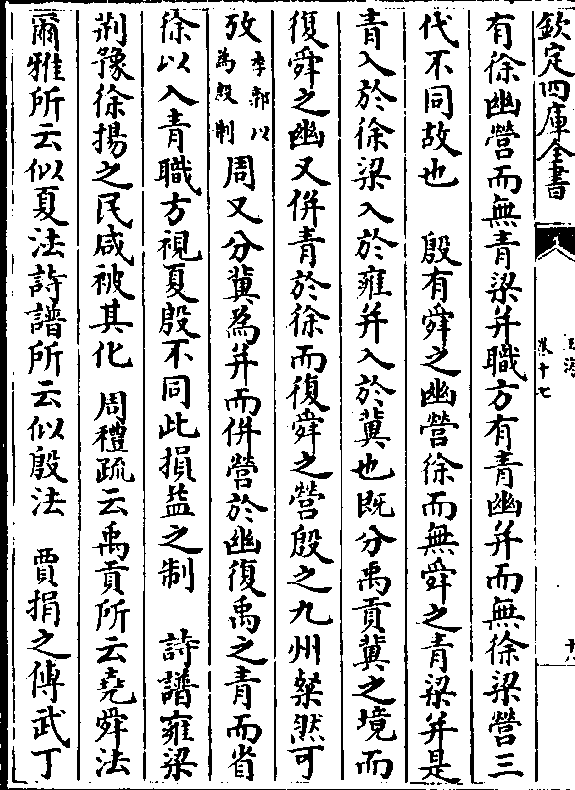 欽定四庫全書
玉海
卷十七
有徐幽營而無青梁并職方有青幽并而無徐梁營三
代不同故也　殷有舜之幽營徐而無舜之青梁并是
青入於徐梁入於雍并入於冀也既分禹貢冀之境而
復舜之幽又併青於徐而復舜之營殷之九州粲然可
攷李郭以為殷制周又分冀為并而併營於幽復禹之青而省
徐以入青職方視夏殷不同此損益之制　詩譜雍梁
荆豫徐揚之民咸被其化　周禮疏云禹貢所云堯舜法
爾雅所云似夏法詩譜所云似殷法　賈捐之傳武丁